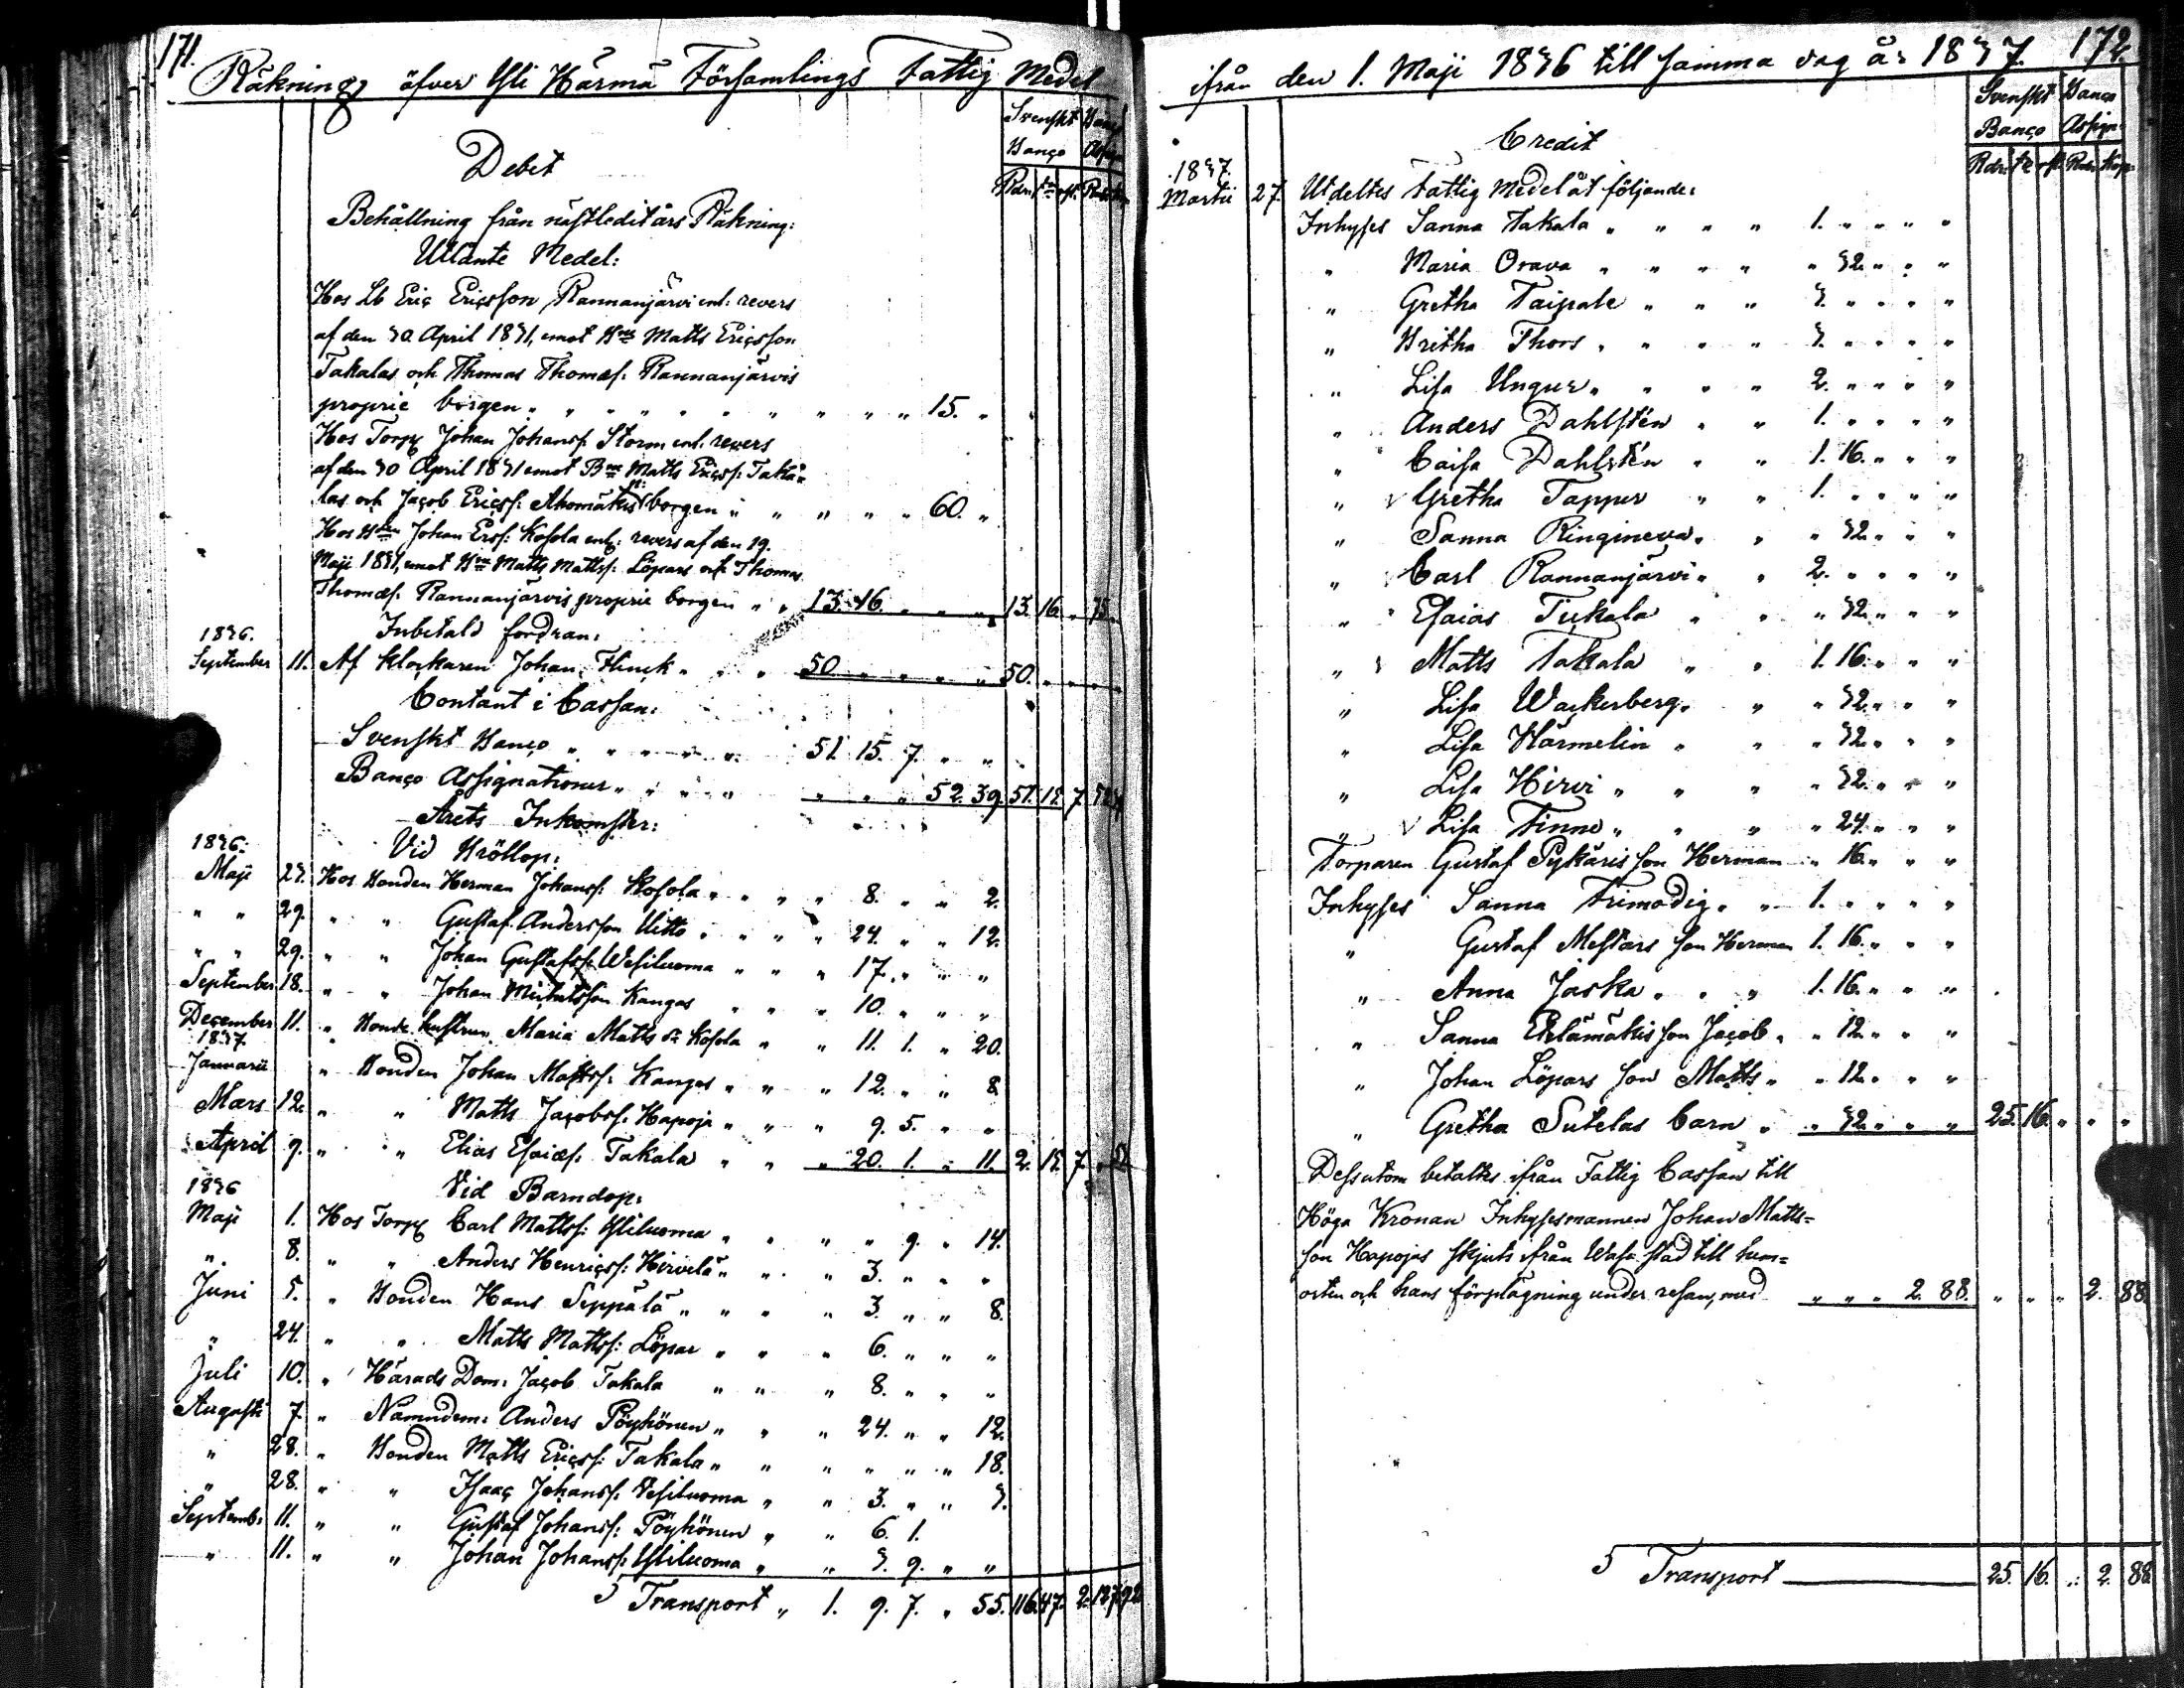 171.
Räkning öfver Yli Härmä Församlings Fattig Medel
Svenskt Banço Banço Assign
Rdr sk rst. Rub. Kop.
Debet
Behållning från nästledit års Räkning:
Utlänte Medel:
Hos Lb Eriç Eriçsson Rannanjärvi enl: revers
af den 30 April 1831, emot Bns Matts Eriçsson
Takalas och Thomas Thomæs: Rannanjärvis
proprie borgen " " " " " " " " " " 15. "
Hos Torp Johan Johanss: Storm enl: revers
af den 30 April 1831 emot Bns Matts Eriçss: Taka=
las och Jaçob Eriçss: Ahomäkis borgen " " " " " 60. "
Hos Bden Johan Erss: Kosola enl: revers af den 19.
Maji 1831, emot Bns Matts Mattss: Löpars och Thomas
Thomæs: Rannanjärvis proprie borgen " " 13. 16. " " " 13. 16. " 75.
Inbetald fordran:
1836.
September 11. Af Klockaren Johan Flinck " " " 50. " " " " 50. " " " "
Contant i Cassan:
Svenskt Banço " " " " " 51. 15. 7. " "
Banço Assignationer " " " " " " " 52. 39. 51. 15. 7. 52.
Årets Inkomster:
1836: Vid Bröllop:
Maji 23. Hos Bonden Herman Johanss: Kosola " " " " 8. " " 2.
" " 29. " " Gustaf Andersson Uitto " " " " 24. " " 12.
" " 29. " " Johan Gustafss: Wesiluoma " " " 17. " " "
September 18. " " Johan Michelsson Kangas " " " 10. " " "
December 11. " Bonde hustrun Maria Matts dr Kosola " " 11. 1. " 20.
1837.
Januarii " Bonden Johan Mattss: Kangas " " " 12. " " 8
Mars 12. " " Matts Jaçobss: Hapoja " " " 9. 5. " "
April 9. " " Elias Esaiæs: Takala " " " 20. 1. " 11. 2. 15. 7. " 53.
1836 Vid Barndop:
Maji 1. Hos Torp Carl Mattss: Yliluoma " " " " 9. " 14.
" 8. " " Anders Henriçss: Hirvelä " " " 3. " " "
Juni 5. " Bonden Hans Seppälä " " " " 3. " " 8.
" 24. " " Matts Mattss: Löpar " " " 6. " " "
Juli 10. " Härads Dom: Jaçob Takala " " " 8. " " "
Augusti 7. " Nämndem: Anders Pöyhönen " " " 24. " " 12.
" 28. " Bonden Matts Eriçss: Takala " " " " " " 18.
" 28. " " Isaaç Johanss: Vesiluoma " " 3. " " 3.
Septemb: 11. " " Gustaf Johanss: Pöyhönen " " 6. 1.
" 11. " " Johan Johanss: Yliluoma " " 3. 9. " "
Transport " 1. 9. 7. " 55. 116. 47. 2. 127. 92
ifrån den 1. Maji 1836 till samma dag år 1837. 172.
Svenskt Banço Banço Assign
Rdr sk rst Rub. Kop.
Credit
1837.
Martii 27. Utdeltes Fattig Medel åt följande:
Inhyses Sanna Takala " " " " 1. " " " "
" Maria Orava " " " " " 32. " " "
" Gretha Taipale " " " 3. " " " "
" Britha Thors " " " " 3. " " " "
" Lisa Ungur " " " " 2. " " " "
" Anders Dahlstén " " 1. " " " "
" Caisa Dahlstén " " 1. 16. " " "
" v Gretha Tappur " " 1. " " " "
" Sanna Ringineva " " " 32. " " "
" Carl Rannanjärvi " " 2. " " " "
" Esaias Tiikala " " " 32. " " "
" Matts Takala " " 1. 16. " " "
" Lisa Wackerberg " " " 32. " " "
" Lisa Härmelin " " " 32. " " "
" Lisa Hirvi " " " " 32. " " "
" v Lisa Finne " " " " 24. " " "
Torparen Gustaf Pykäris son Herman " 16. " " "
Inhyses Sanna Frimodig " " 1. " " " "
" Gustaf Mestars son Herman 1. 16. " " "
" Anna Jaska " " " 1. 16. " " "
" Sanna Eklämäkis son Jaçob " " 12. " " "
" Johan Löpars son Matts " " 12. " " "
" Gretha Sutelas barn " " 32. " " " 25. 16. " " "
Dessutom betaltes ifrån Fattig Cassan till
Höga Kronan Inhysesmannen Johan Matts=
son Hapojas skjuts ifrån Wasa stad till hem=
orten och hans förplägning under resan, med " " " 2. 88. " " " 2. 88.
Transport 25. 16. " 2. 88